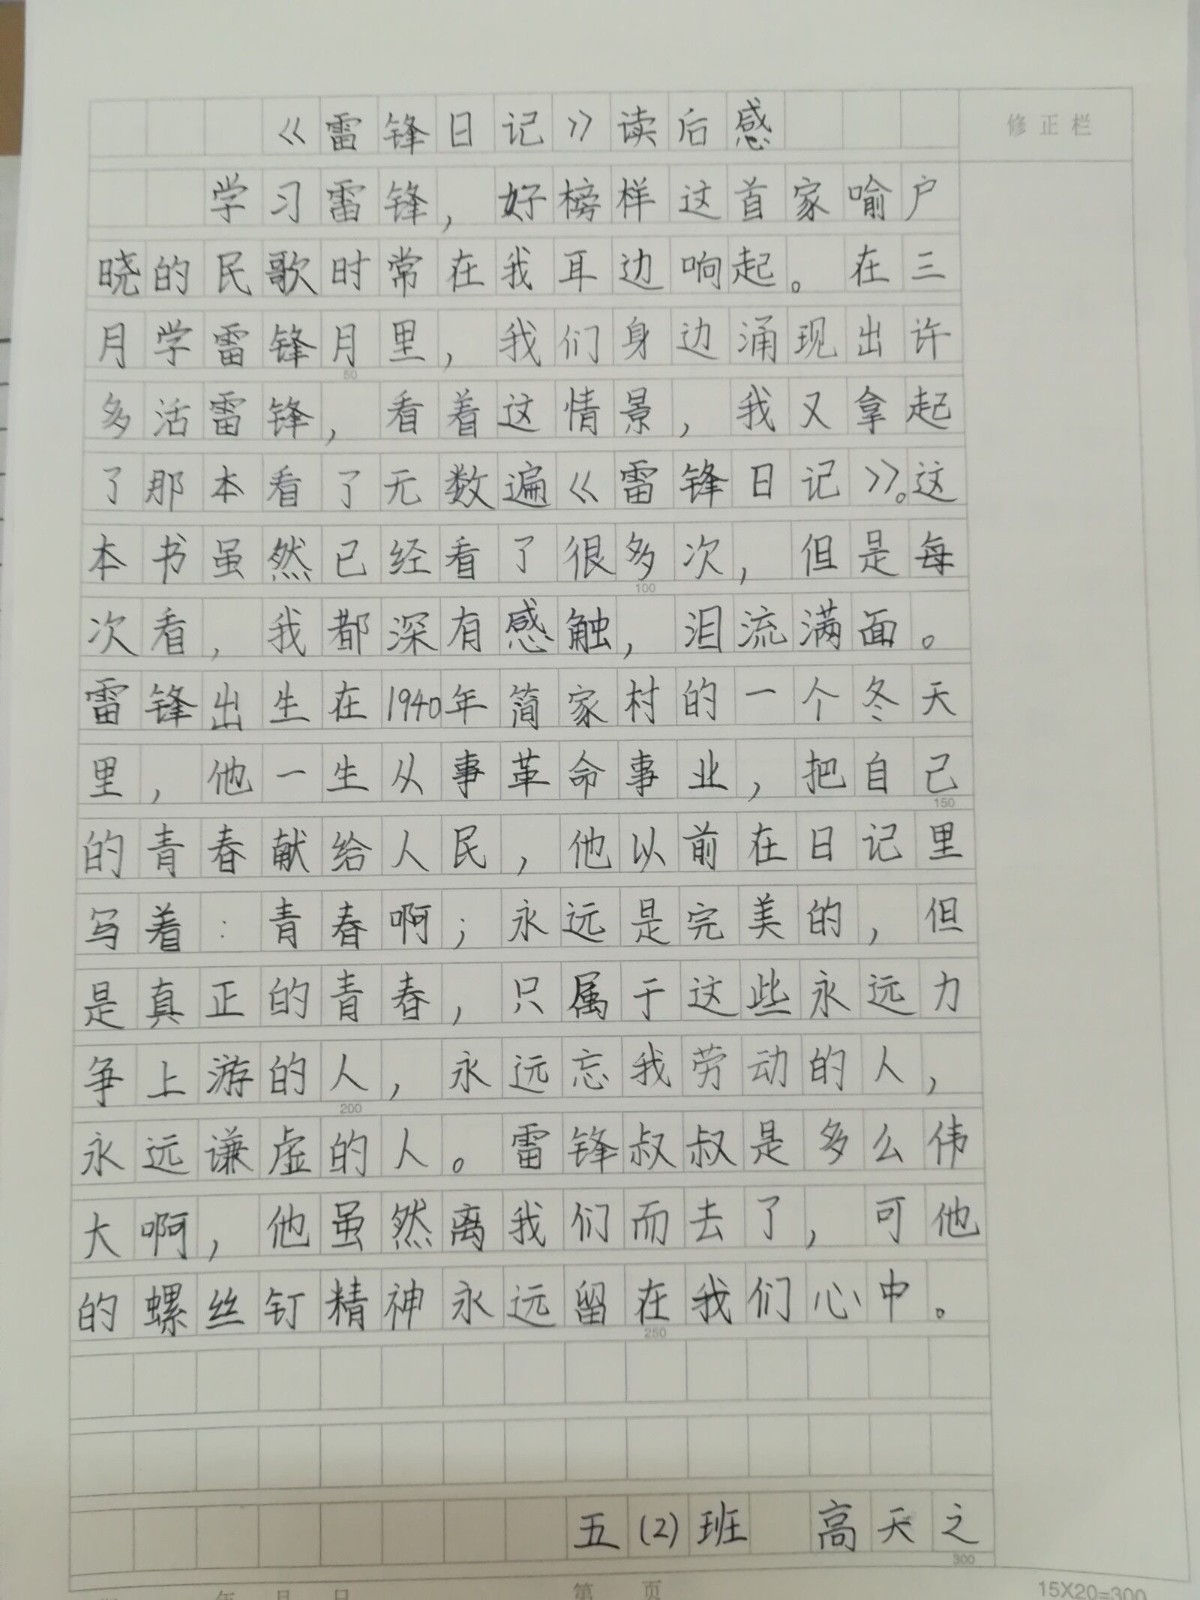 《雷锋日记》读后感
修正栏
学习雷锋，好榜样这首家喻户
晓的民歌时常在我耳边响起。在三
月学雷锋月里，我们身边涌现出许
50
多活雷锋，看着这情景，我又拿起
了那本看了无数遍《雷锋日记》。这
本书虽然已经看了很多次，但是每
100
次看，我都深有感触，泪流满面。
雷锋出生在1940年简家村的一个冬天
里，他一生从事革命事业，把自己
150
的青春献给人民，他以前在日记里
写着：青春啊；永远是完美的，但
是真正的青春，只属于这些永远力
争上游的人，永远忘我劳动的人，
200
永远谦虚的人。雷锋叔叔是多么伟
大啊，他虽然离我们而去了，可他
的螺丝钉精神永远留在我们心中。
250
五(2)班 高天之
300
年 月 日 第 页 15X20=300